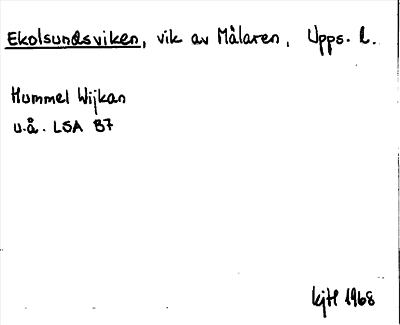 Ekolsundsviken, vik av Mälaren, Upps. l.
Hummel Wijkan
u.å. LSA B7
kjtl 1968